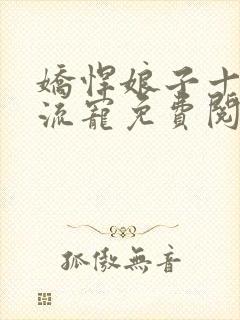 嬌悍娘子十
流寵免費閱
孤傲無音